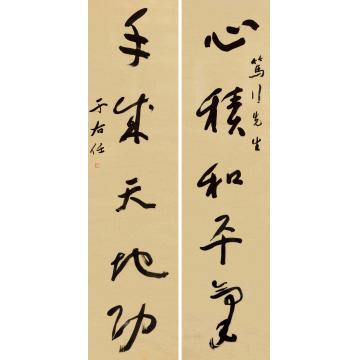 心積和平氣
篤行先生
手成天地功
于右任